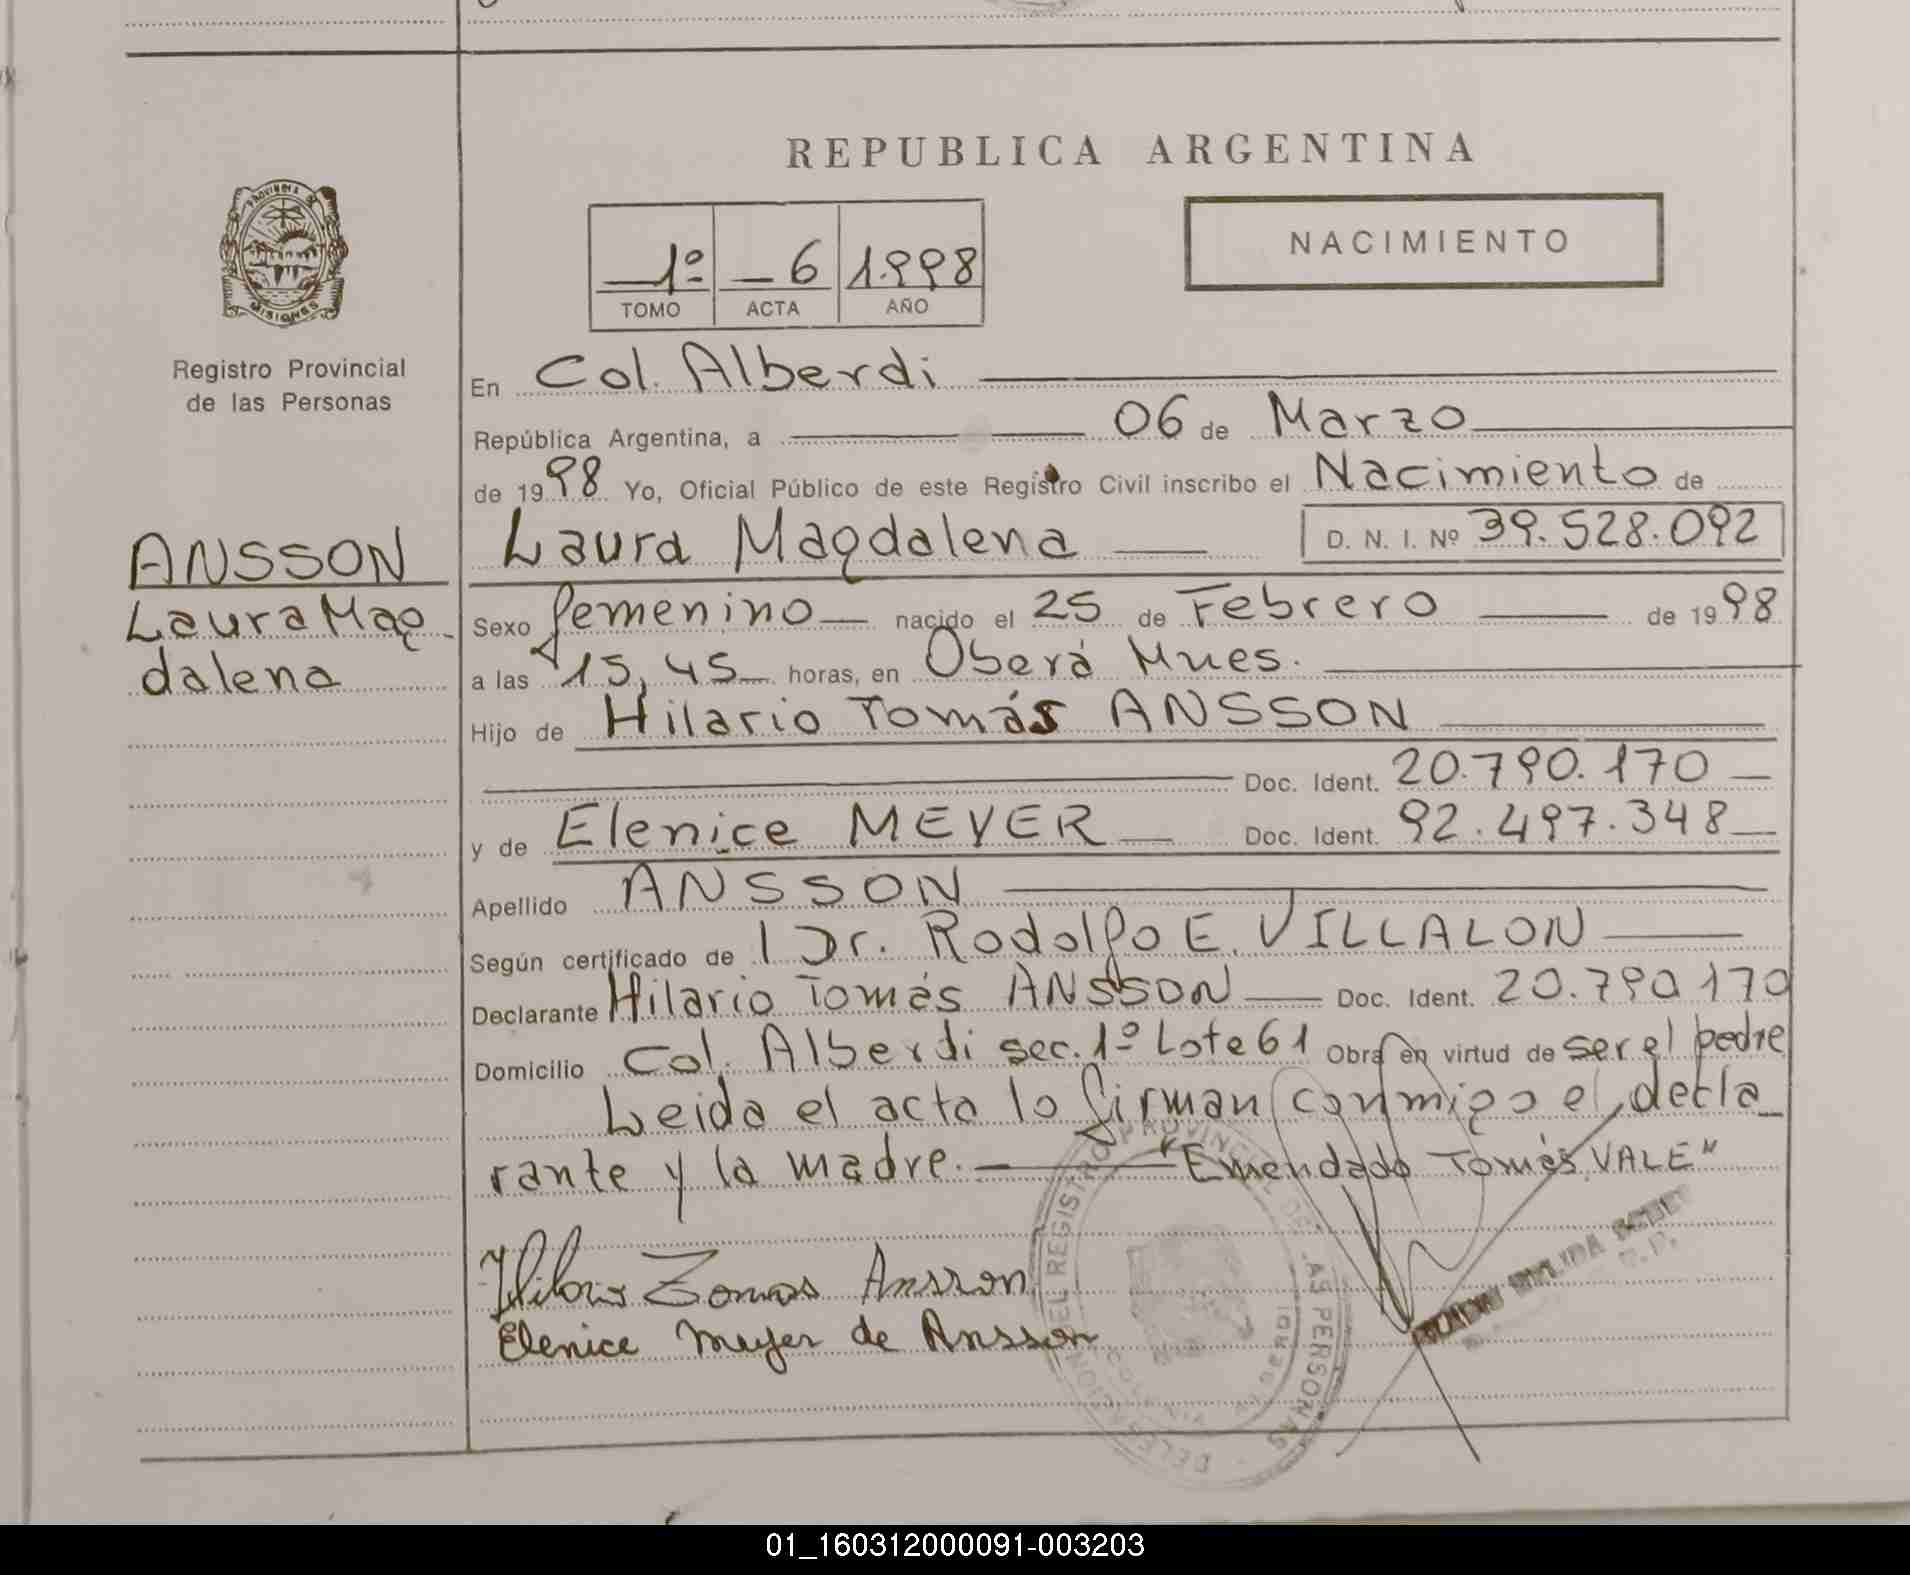 REPUBLICA ARGENTINA
PROVINCIA DE MISIONES
Registro Provincial
de las Personas
ANSSON
Laura Mag
dalena
1º - 6 1.998
TOMO ACTA AÑO
NACIMIENTO
En Col. Alberdi
República Argentina, a 06 de Marzo
de 1998 Yo, Oficial Público de este Registro Civil inscribo el Nacimiento de
Laura Magdalena D. N. I. Nº 39.528.092
Sexo femenino nacido el 25 de Febrero de 1998
a las 15,45 horas, en Oberá Mnes.
Hijo de Hilario Tomás ANSSON
Doc. Ident. 20.790.170
y de Elenice MEYER Doc. Ident. 92.497.348
Apellido ANSSON
Según certificado de Dr. Rodolfo E. VILLALON
Declarante Hilario Tomás ANSSON Doc. Ident. 20.790.170
Domicilio Col. Alberdi sec. 1º Lote 61 Obra en virtud de ser el padre
Leida el acta lo firman conmigo el decla_
rante y la madre. "Emendado Tomás, VALE"
Hilario Tomas Ansson
Elenice Meyer de Ansson
DELEGACION DEL REGISTRO PROVINCIAL DE LAS PERSONAS
COLONIA ALBERDI
01_160312000091-003203